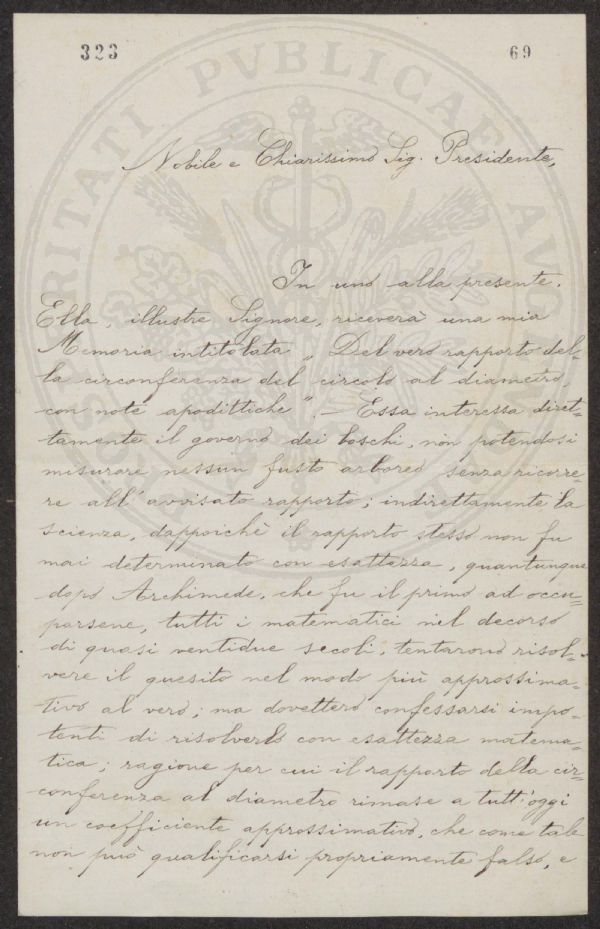 323 69
Nobile e Chiarissimo Sig. Presidente,
In uno alla presente.
Ella, illustre Signore, riceverà una mia
Memoria intitolata „ Del vero rapporto del-
la circonferenza del circolo al diametro,
con note apodittiche". — Essa interessa diret-
tamente il governo dei boschi, non potendosi
misurare nessun fusto arboreo senza ricorre-
re all'avvisato rapporto; indirettamente la
scienza, dappoichè il rapporto stesso non fu
mai determinato con esattezza, quantunque
dopo Archimede, che fu il primo ad occu-
parsene, tutti i matematici nel decorso
di quasi ventidue secoli, tentarono risol-
vere il quesito nel modo più approssima-
tivo al vero; ma dovettero confessarsi impo-
tenti di risolverlo con esattezza matema-
tica; ragione per cui il rapporto della cir-
conferenza al diametro rimase a tutt'oggi
un coefficiente approssimativo, che come tale
non può qualificarsi propriamente falso, e